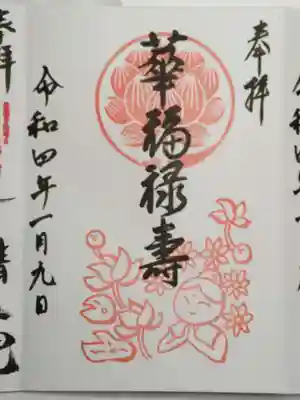 奉拝
華福禄寿
令和四年一月九日
奉拝